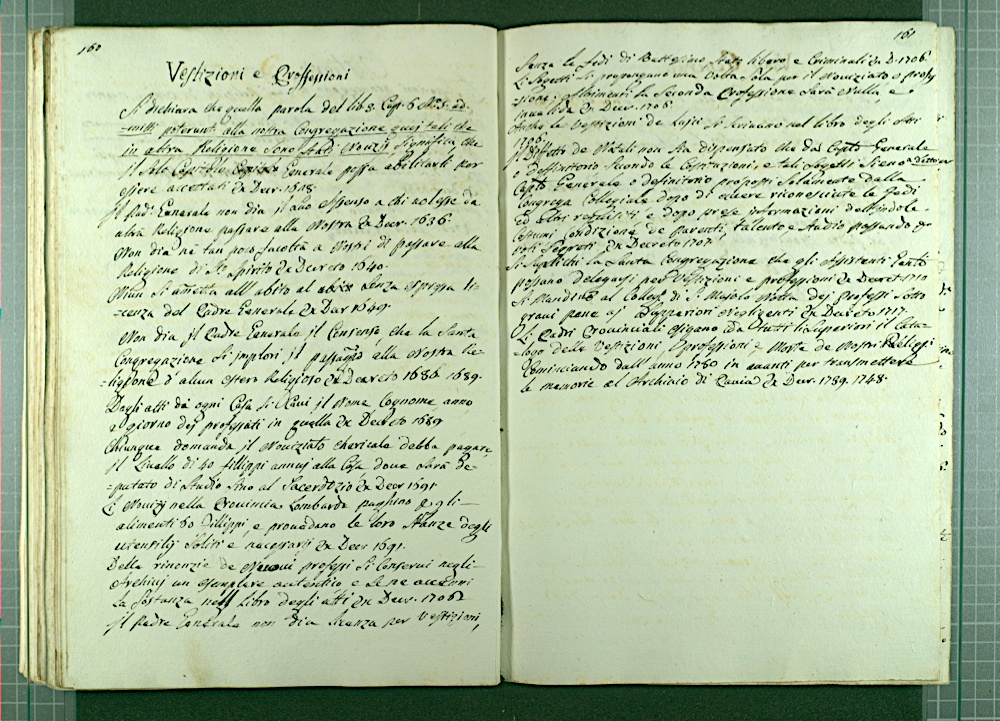 160
Vestizioni e Professioni
Si dichiara che quella parola del lib. 3. Cap. 6 ad-
-mitti poterunt alla nostra Congregazione quei tali che
in altra Religione sono stati Novizj significa che
il solo Capitolo Generale possa abilitarli per
essere accettati Ex Decr. 1618.
Il Pad. Generale non dia il suo assenso a chi volesse da
altra Religione passare alla Nostra Ex Decr. 1636.
Non dia ne tan poco facoltà a Nostri di passare alla
Religione di Sto Spirito Ex Decreto 1640.
Niun si ametta all'abito senza espressa li-
cenza del Padre Generale Ex Decr 1649.
Non dia il Padre Generale il Consenso che la Santa
Congregazione si implori il passaggio alla Nostra Re-
ligione d'alcun estero Religioso Ex Decreto 1686. 1689.
Dagli atti di ogni Casa si cavi il Nome Cognome, anno,
e giorno dei professati in quella Ex Decreto 1689
Chiunque domanda il Noviziato chericale debba pagare
il livello di 40 fillippi annui alla Casa dove sarà de-
-putato di studio sino al Sacerdozio Ex Decr 1691.
Li Novizj nella Provincia Lombarda paghino per gli
alimenti 60 Fillippi, e provedano le loro stanze degli
utensilij soliti e necessarij Ex Decr 1691.
Della rinonzie de Novizi professi si conservi negli
Archivij un esemplare autentico e se ne accenni
la sostanza nel Libro degli atti Ex Decr. 1706
Il Padre Generale non dia licenza per Vestizioni,
161
senza le fedi di Battesimo stato libero e Criminali Ex D. 1706
Li Sogetti si propongano una volta sola per il Noviziato e profes-
-sione: altrimenti la seconda Professione sarà nulla, e
invalida Ex Decr. 1706
Anche le Vestizioni de laici si scrivano nel libro degli altri
1706.
Il Difetto de Natali non sia dispensato che dal Capto Generale
o deffinitorio secondo le Costituzioni, e tali sogetti sieno a detto
Capto Generale o definitorio proposti solamente dalla
Congrega Collegiale dopo di essere riconosciute le fedi
ed altri requisiti e dopo prese informazioni dell'indole,
costumi condizione de Parenti, talento e studio passando per
voti segreti Ex Decreto 1707.
Si supplichi la Santa Congregazione che gli Assistenti
possano delegarsi per Vestizioni e professioni Ex Decret 1710
Si mandino al Colleg. di S. Majolo Notta dei professi sotto
gravi pene ai Supperiori negligenti Ex Decreto 1717.
Li Padri Provinciali esigano da tutti li Superiori il Cata-
-logo delle Vestizioni, Professioni, e Morte de Nostri Religiosi
Cominciando dall'anno 1730 in avanti per transmettere
le memorie al Archivio di Pavia Ex Decr. 1739. 1748.